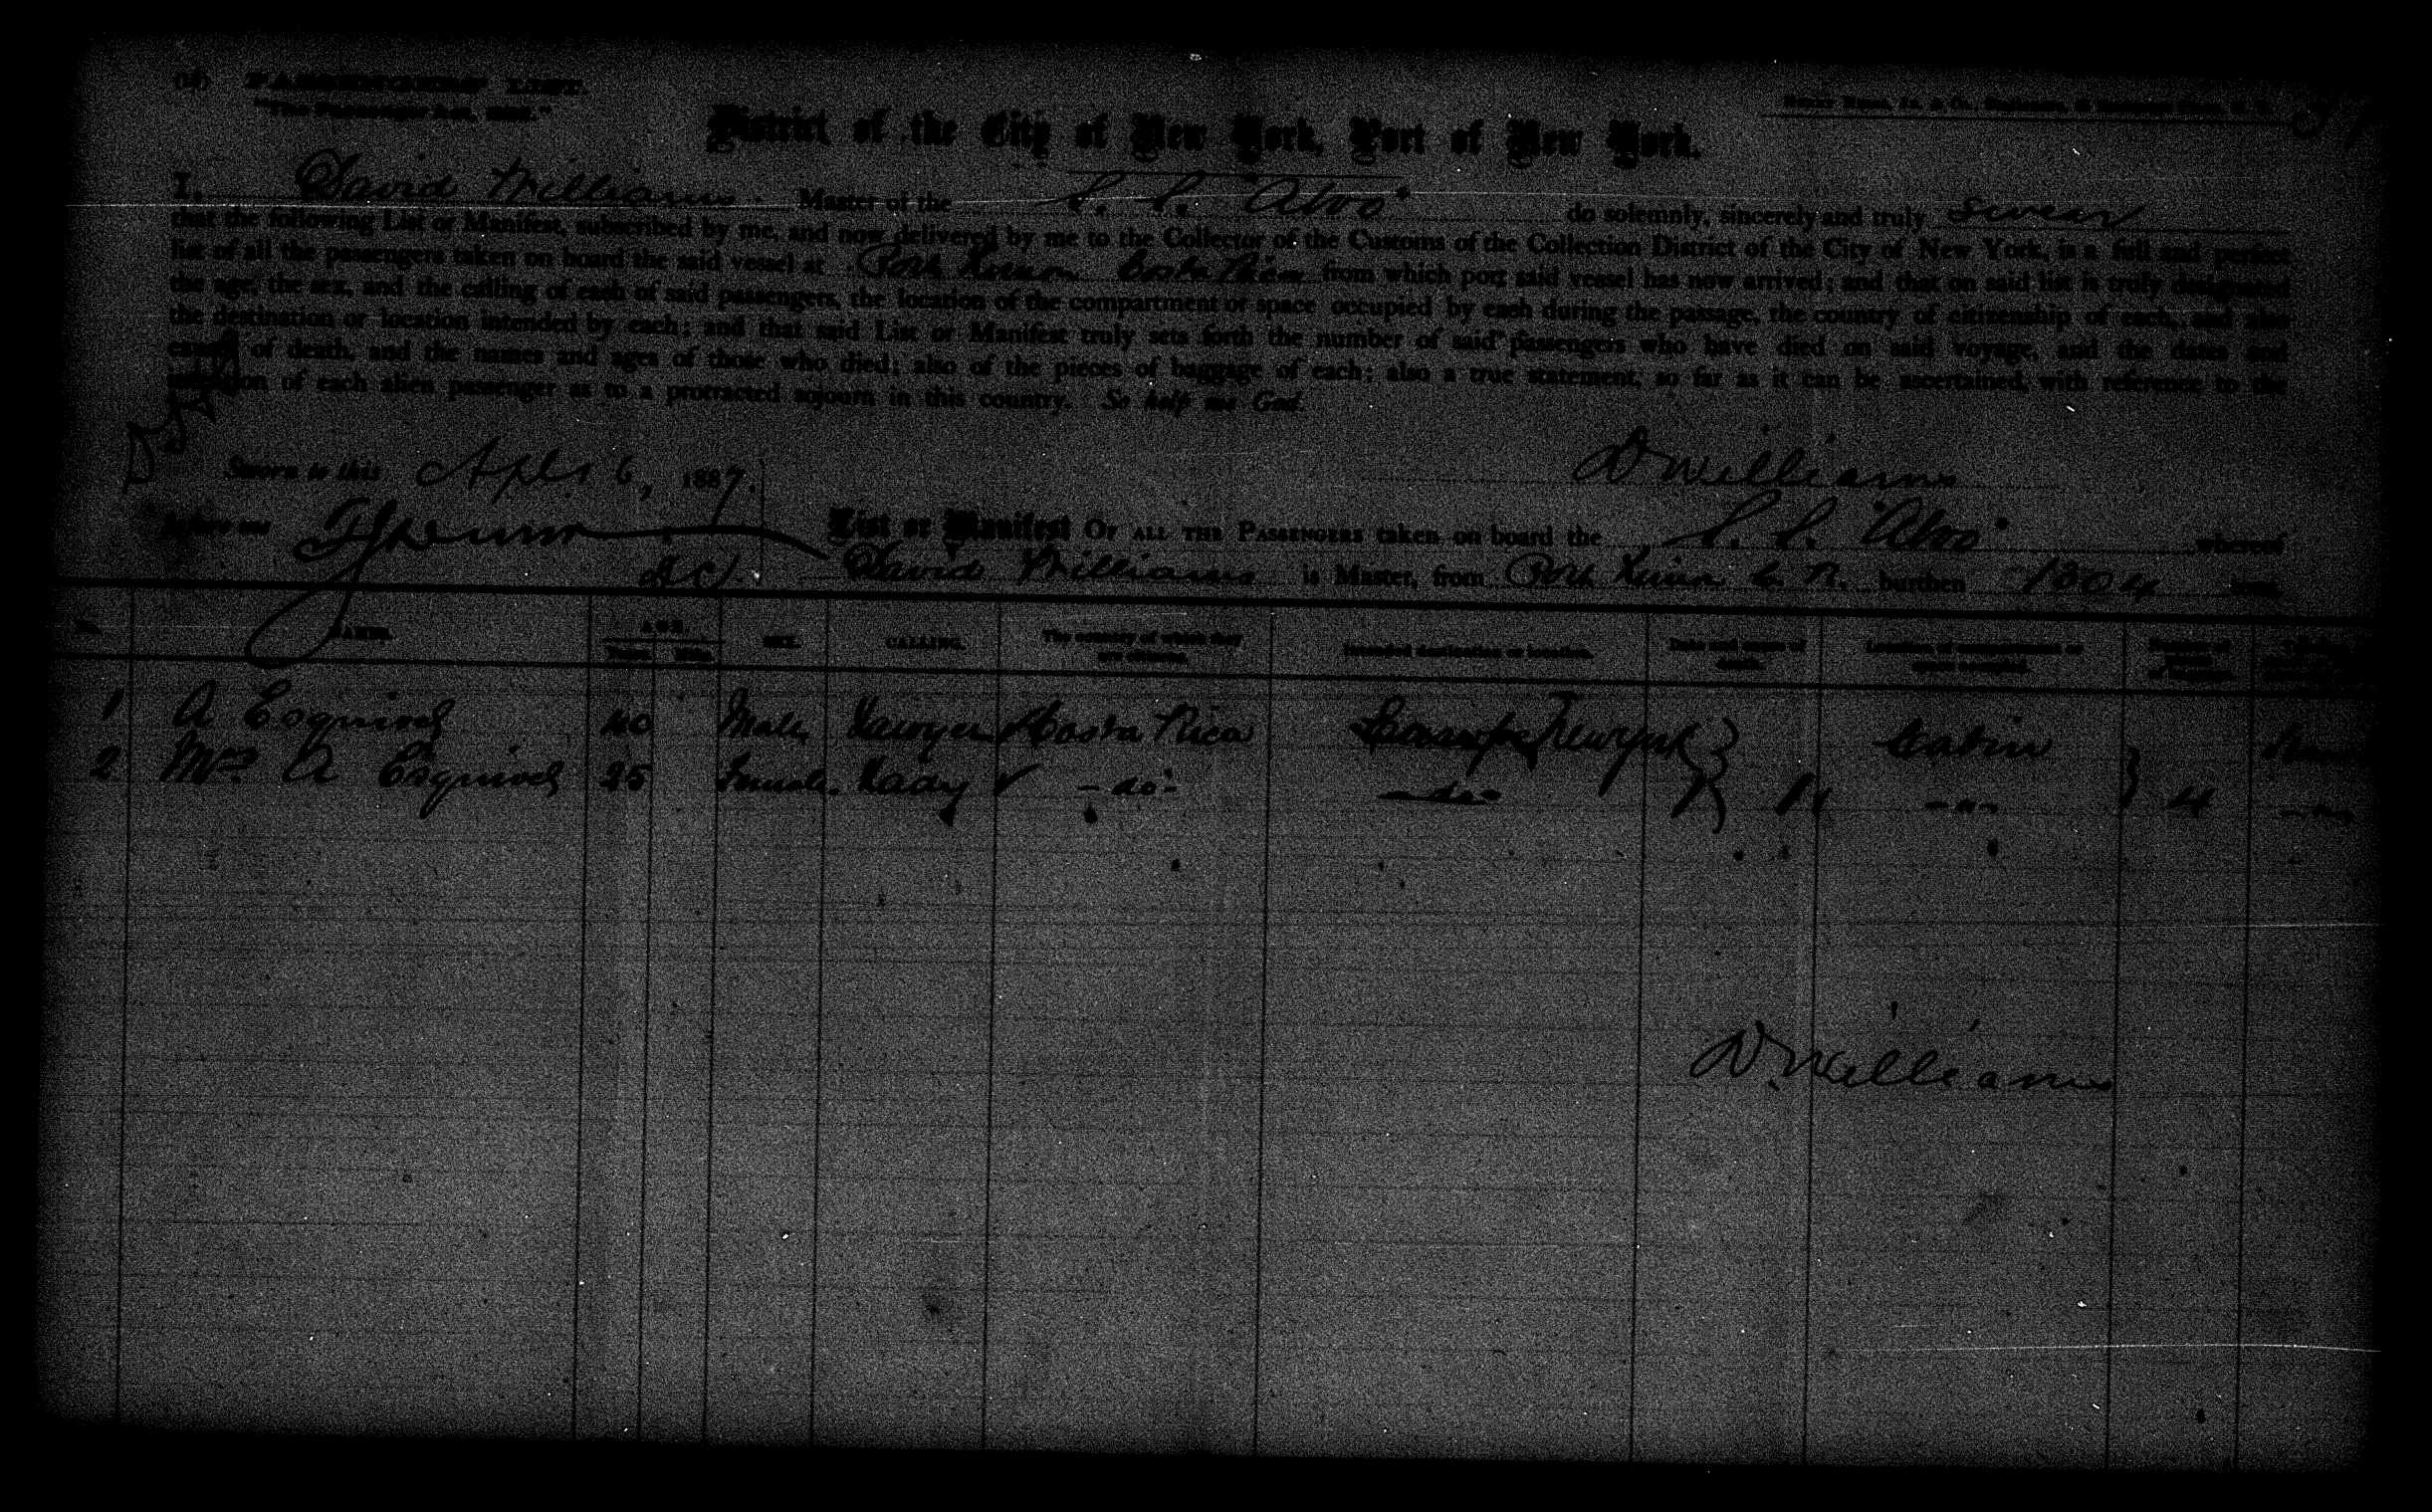 PASSENGERS' LIST.
District of the City of New York, Port of New York.
I, David Williams Master of the S. S. "Alvo" do solemnly, sincerely and truly swear
that the following List or Manifest, subscribed by me, and now delivered by me to the Collector of the Customs of the Collection District of the City of New York, is a full and perfect
list of all the passengers taken on board the said vessel at Port Limon Costa Rica from which port said vessel has now arrived; and that on said list is truly designated
the age, the sex, and the calling of each of said passengers, the location of the compartment or space occupied by each during the passage, the country of citizenship of each, and also
the destination or location intended by each; and that said List or Manifest truly sets forth the number of said passengers who have died on said voyage, and the dates and
causes of death, and the names and ages of those who died; also of the pieces of baggage of each; also a true statement, so far as it can be ascertained, with reference to the
intention of each alien passenger as to a protracted sojourn in this country. So help me God.
D Williams
Sworn to this Apl 6, 1887.
before me
List or Manifest OF ALL THE PASSENGERS taken on board the S. S. "Alvo" whereof
David Williams is Master, from Port Limon C. R. burthen 1304 tons
No. NAMES. AGE. SEX. CALLING. The country of which they are citizens. Intended destination or location. Date and cause of death. Location of compartment or space occupied.
Years. Mths.
1 A Esquivel 40 Male Lawyer Costa Rica New York Cabin
2 Mrs A Esquivel 25 Female Lady - do - - do - - " - 4
D. Williams